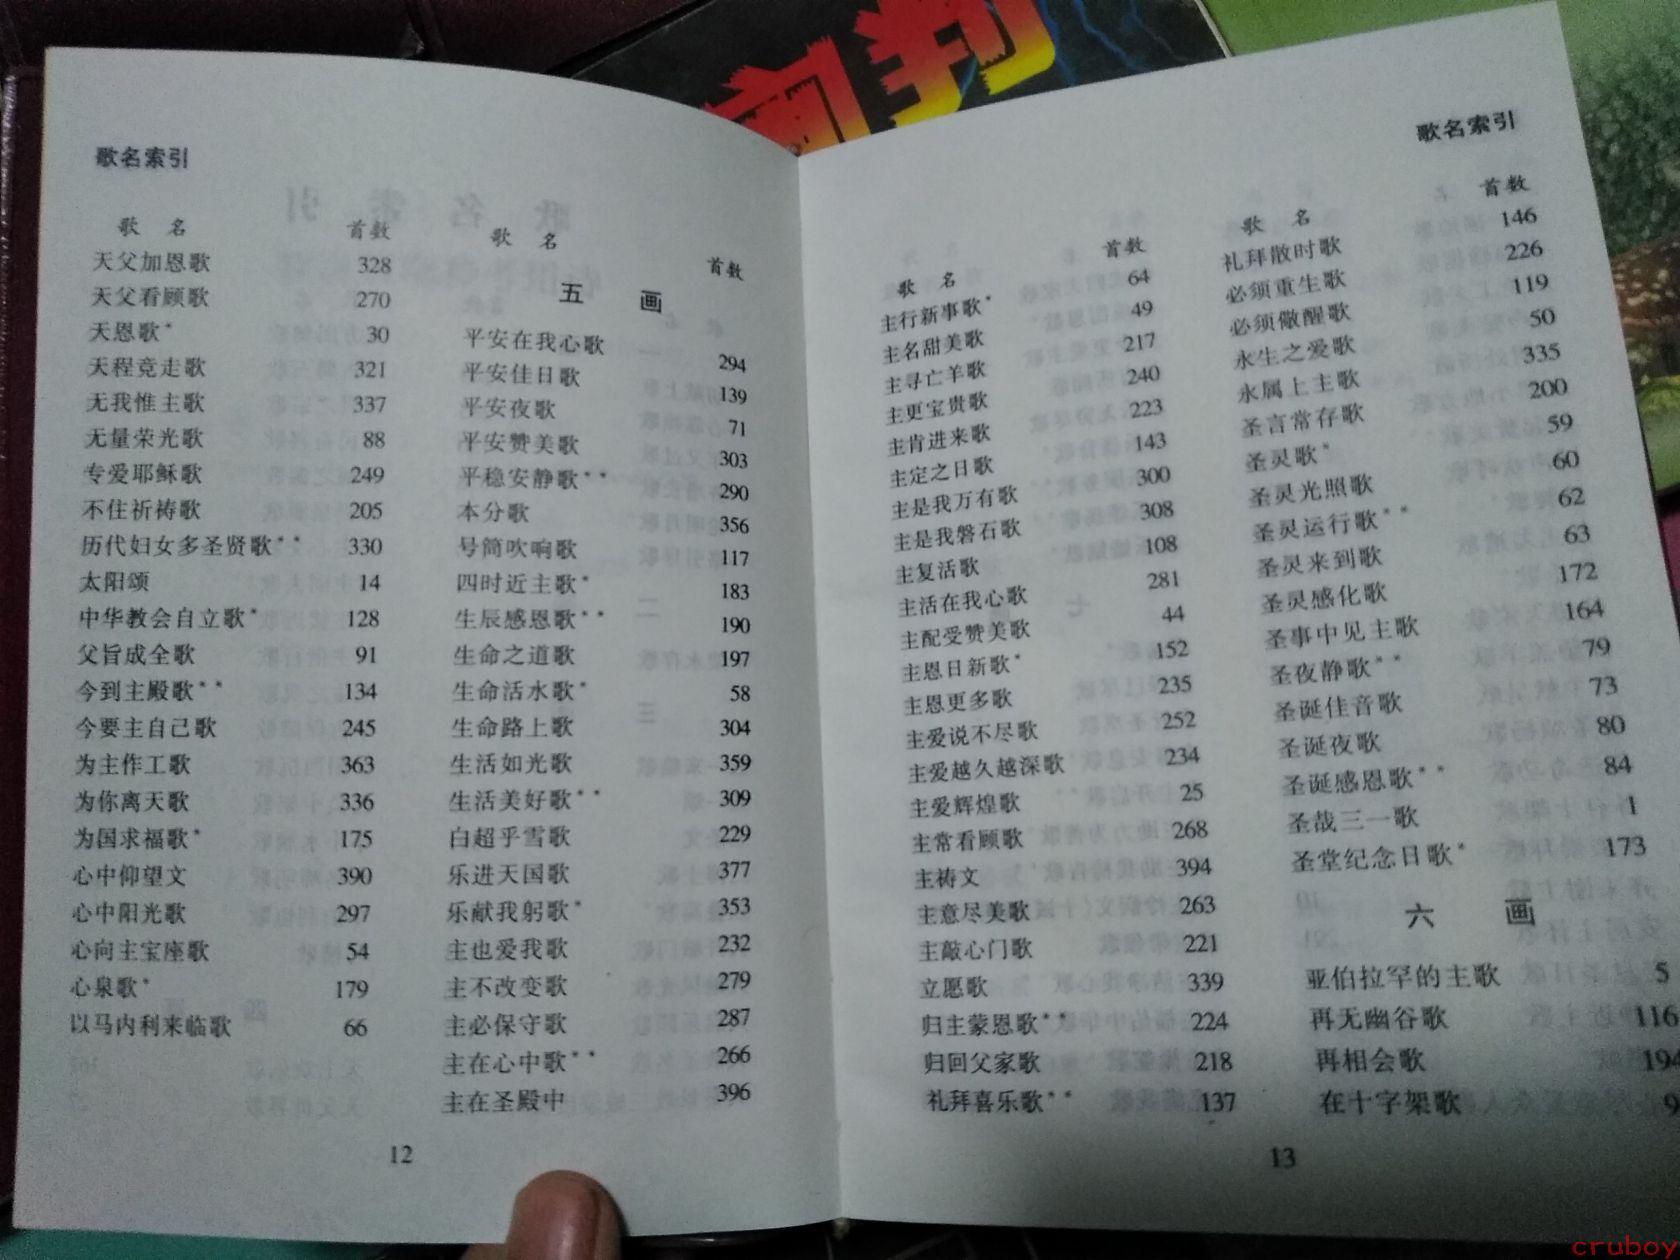 歌名索引
歌 名 首数
天父加恩歌 328
天父看顾歌 270
天恩歌* 30
天程竞走歌 321
无我惟主歌 337
无量荣光歌 88
专爱耶稣歌 249
不住祈祷歌 205
历代妇女多圣贤歌** 330
太阳颂 14
中华教会自立歌* 128
父旨成全歌 91
今到主殿歌** 134
今要主自己歌 245
为主作工歌 363
为你离天歌 336
为国求福歌* 175
心中仰望文 390
心中阳光歌 297
心向主宝座歌 54
心泉歌* 179
以马内利来临歌 66
歌 名 首数
五 画
平安在我心歌 294
平安佳日歌 139
平安夜歌 71
平安赞美歌 303
平稳安静歌** 290
本分歌 356
号筒吹响歌 117
四时近主歌* 183
生辰感恩歌** 190
生命之道歌 197
生命活水歌* 58
生命路上歌 304
生活如光歌 359
生活美好歌** 309
白超乎雪歌 229
乐进天国歌 377
乐献我躬歌* 353
主也爱我歌 232
主不改变歌 279
主必保守歌 287
主在心中歌** 266
主在圣殿中 396
12
歌名索引
歌 名 首数
主行新事歌* 64
主名甜美歌 49
主寻亡羊歌 217
主更宝贵歌 240
主肯进来歌 223
主定之日歌 143
主是我万有歌 300
主是我磐石歌 308
主复活歌 108
主活在我心歌 281
主配受赞美歌 44
主恩日新歌* 152
主恩更多歌 235
主爱说不尽歌 252
主爱越久越深歌 234
主爱辉煌歌 25
主常看顾歌 268
主祷文 394
主意尽美歌 263
主敲心门歌 221
立愿歌 339
归主蒙恩歌** 224
归回父家歌 218
礼拜喜乐歌** 137
歌 名 首数
礼拜散时歌 146
必须重生歌 226
必须儆醒歌 119
永生之爱歌 50
永属上主歌 335
圣言常存歌 200
圣灵歌* 59
圣灵光照歌 60
圣灵运行歌** 62
圣灵来到歌 63
圣灵感化歌 172
圣事中见主歌 164
圣夜静歌** 79
圣诞佳音歌 73
圣诞夜歌 80
圣诞感恩歌** 84
圣哉三一歌 1
圣堂纪念日歌* 173
六 画
亚伯拉罕的主歌 5
再无幽谷歌 116
再相会歌 194
在十字架歌
13
cruboy